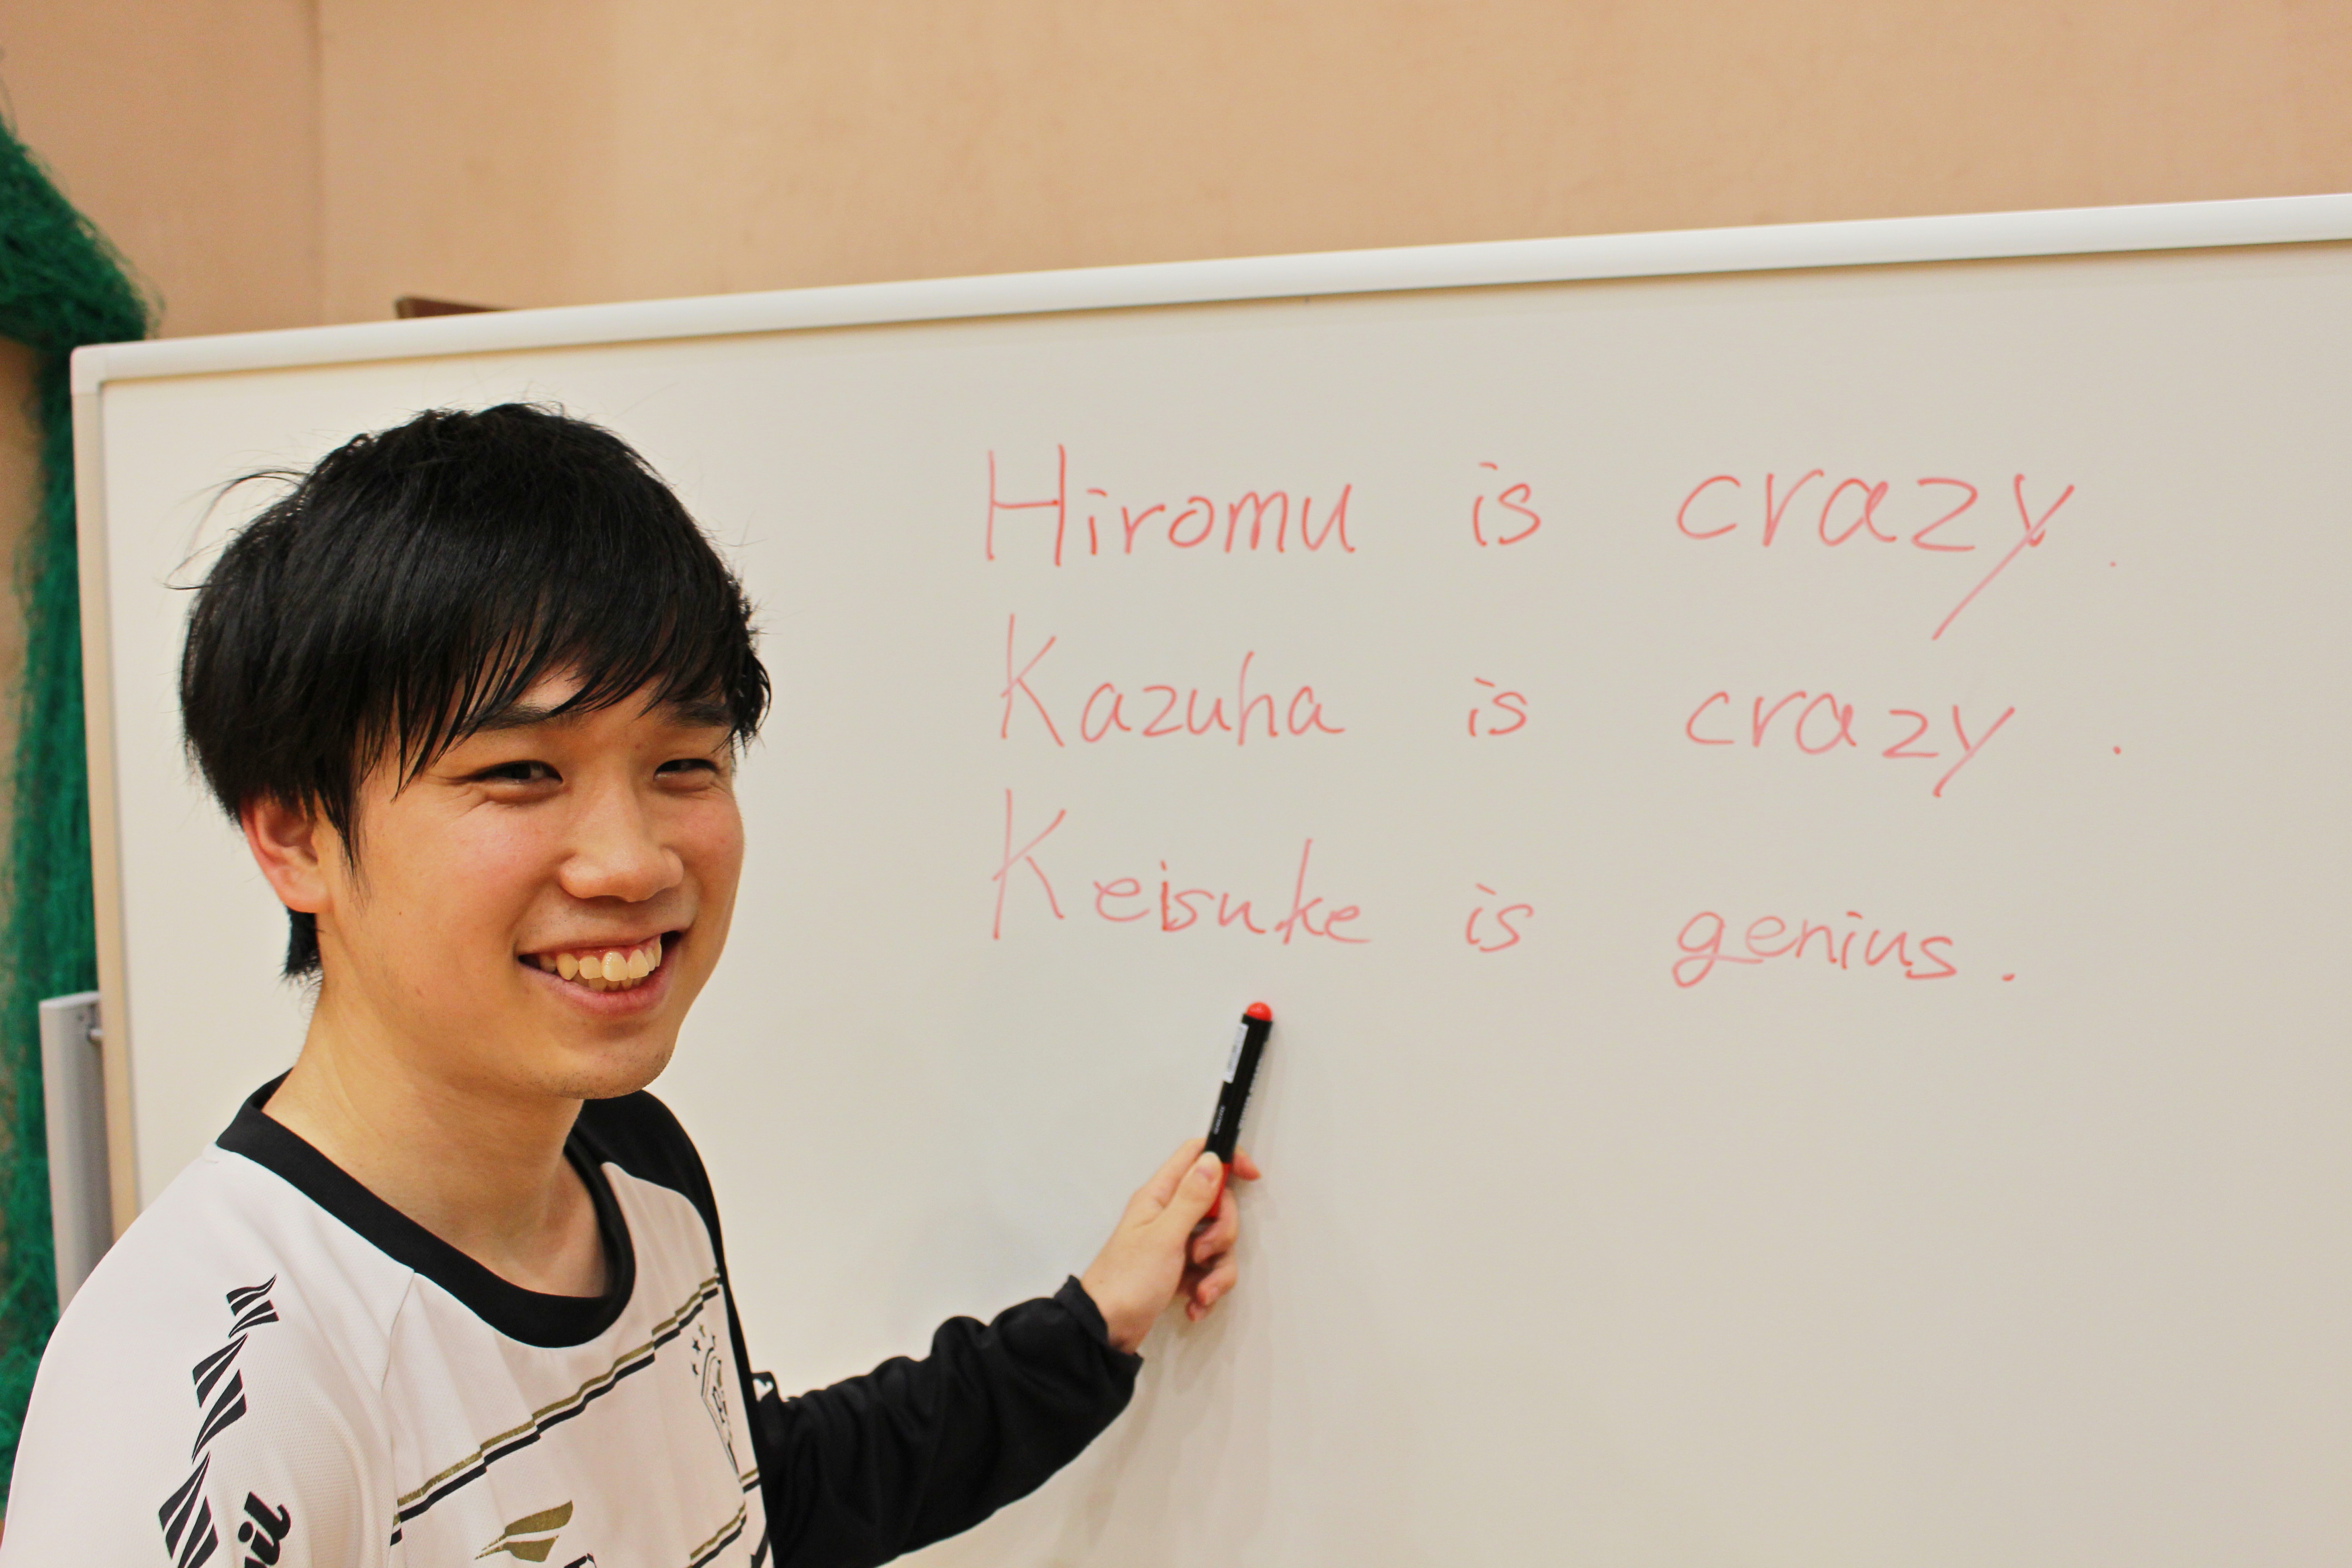 Hiromu is crazy.
Kazuha is crazy.
Keisuke is genius.